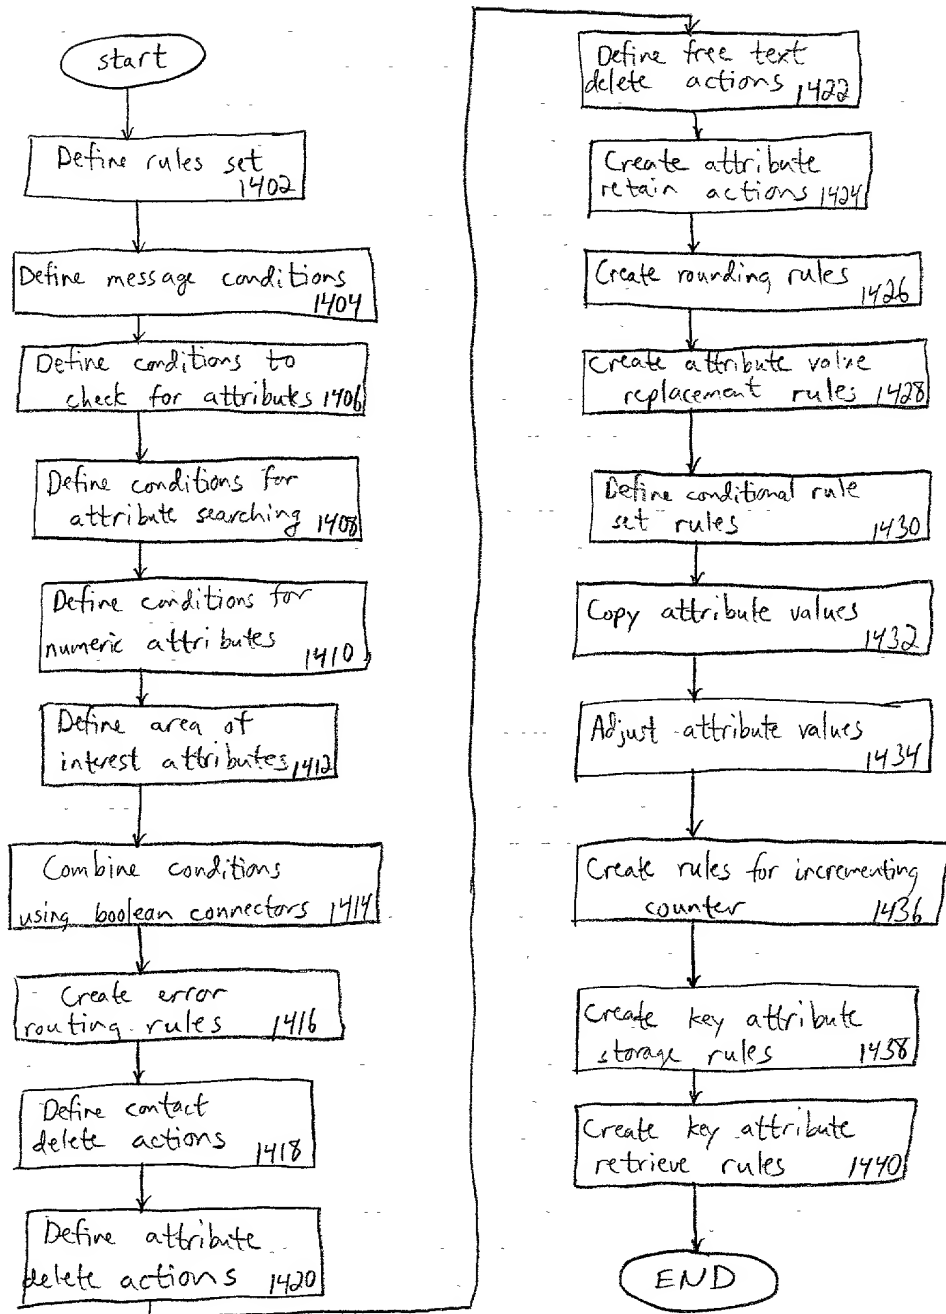 start
Define rules set
1402
Define message conditions
1404
Define conditions to
check for attributes 1406
Define conditions for
attribute searching 1408
Define conditions for
numeric attributes
1410
Define area of
interest attributes 1412
Combine conditions
using boolean connectors 1414
Create error
routing rules 1416
Define contact
delete actions 1418
Define attribute
delete actions 1420
Define free text
delete actions 1422
Create attribute
retain actions 1424
Create rounding rules
1426
Create attribute value
replacement rules 1428
Define conditional rule
set rules 1430
Copy attribute values
1432
Adjust attribute values
1434
Create rules for incrementing
counter 1436
Create key attribute
storage rules 1438
Create key attribute
retrieve rules 1440
END